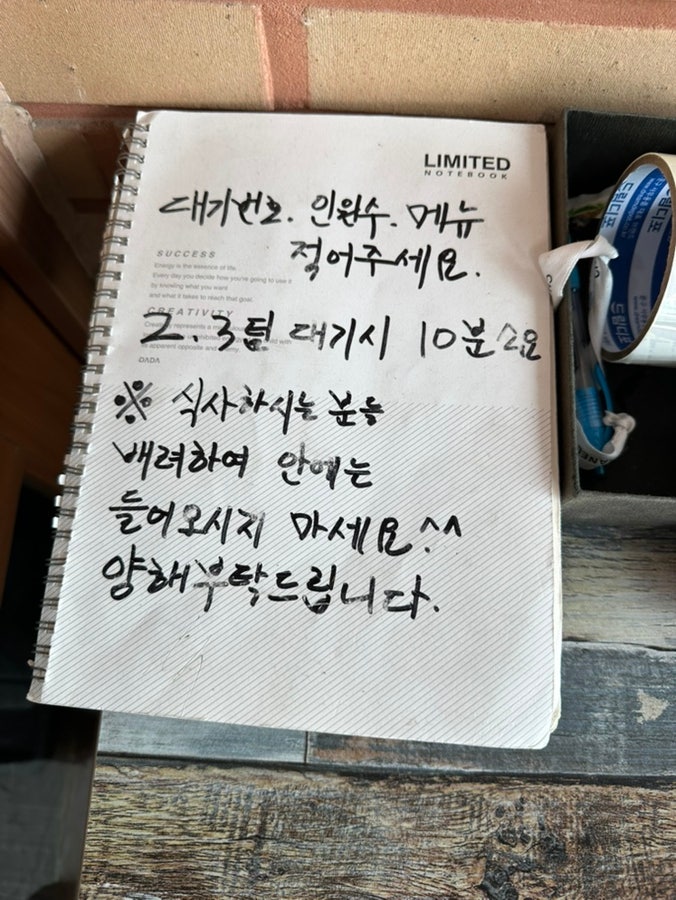 LIMITED
NOTEBOOK
대기번호. 인원수. 메뉴
적어주세요.
SUCCESS
Energy is the essence of life.
Every day you decide how you're going to use it
by knowing what you want
and what it takes to reach that goal.
CREATIVITY
2. 3팀 대기시 10분 소요
apparent opposite and
DADA
※ 식사하시는 분들
배려하여 안에는
들어오시지 마세요^^
양해부탁드립니다.
드림디포
드림디포